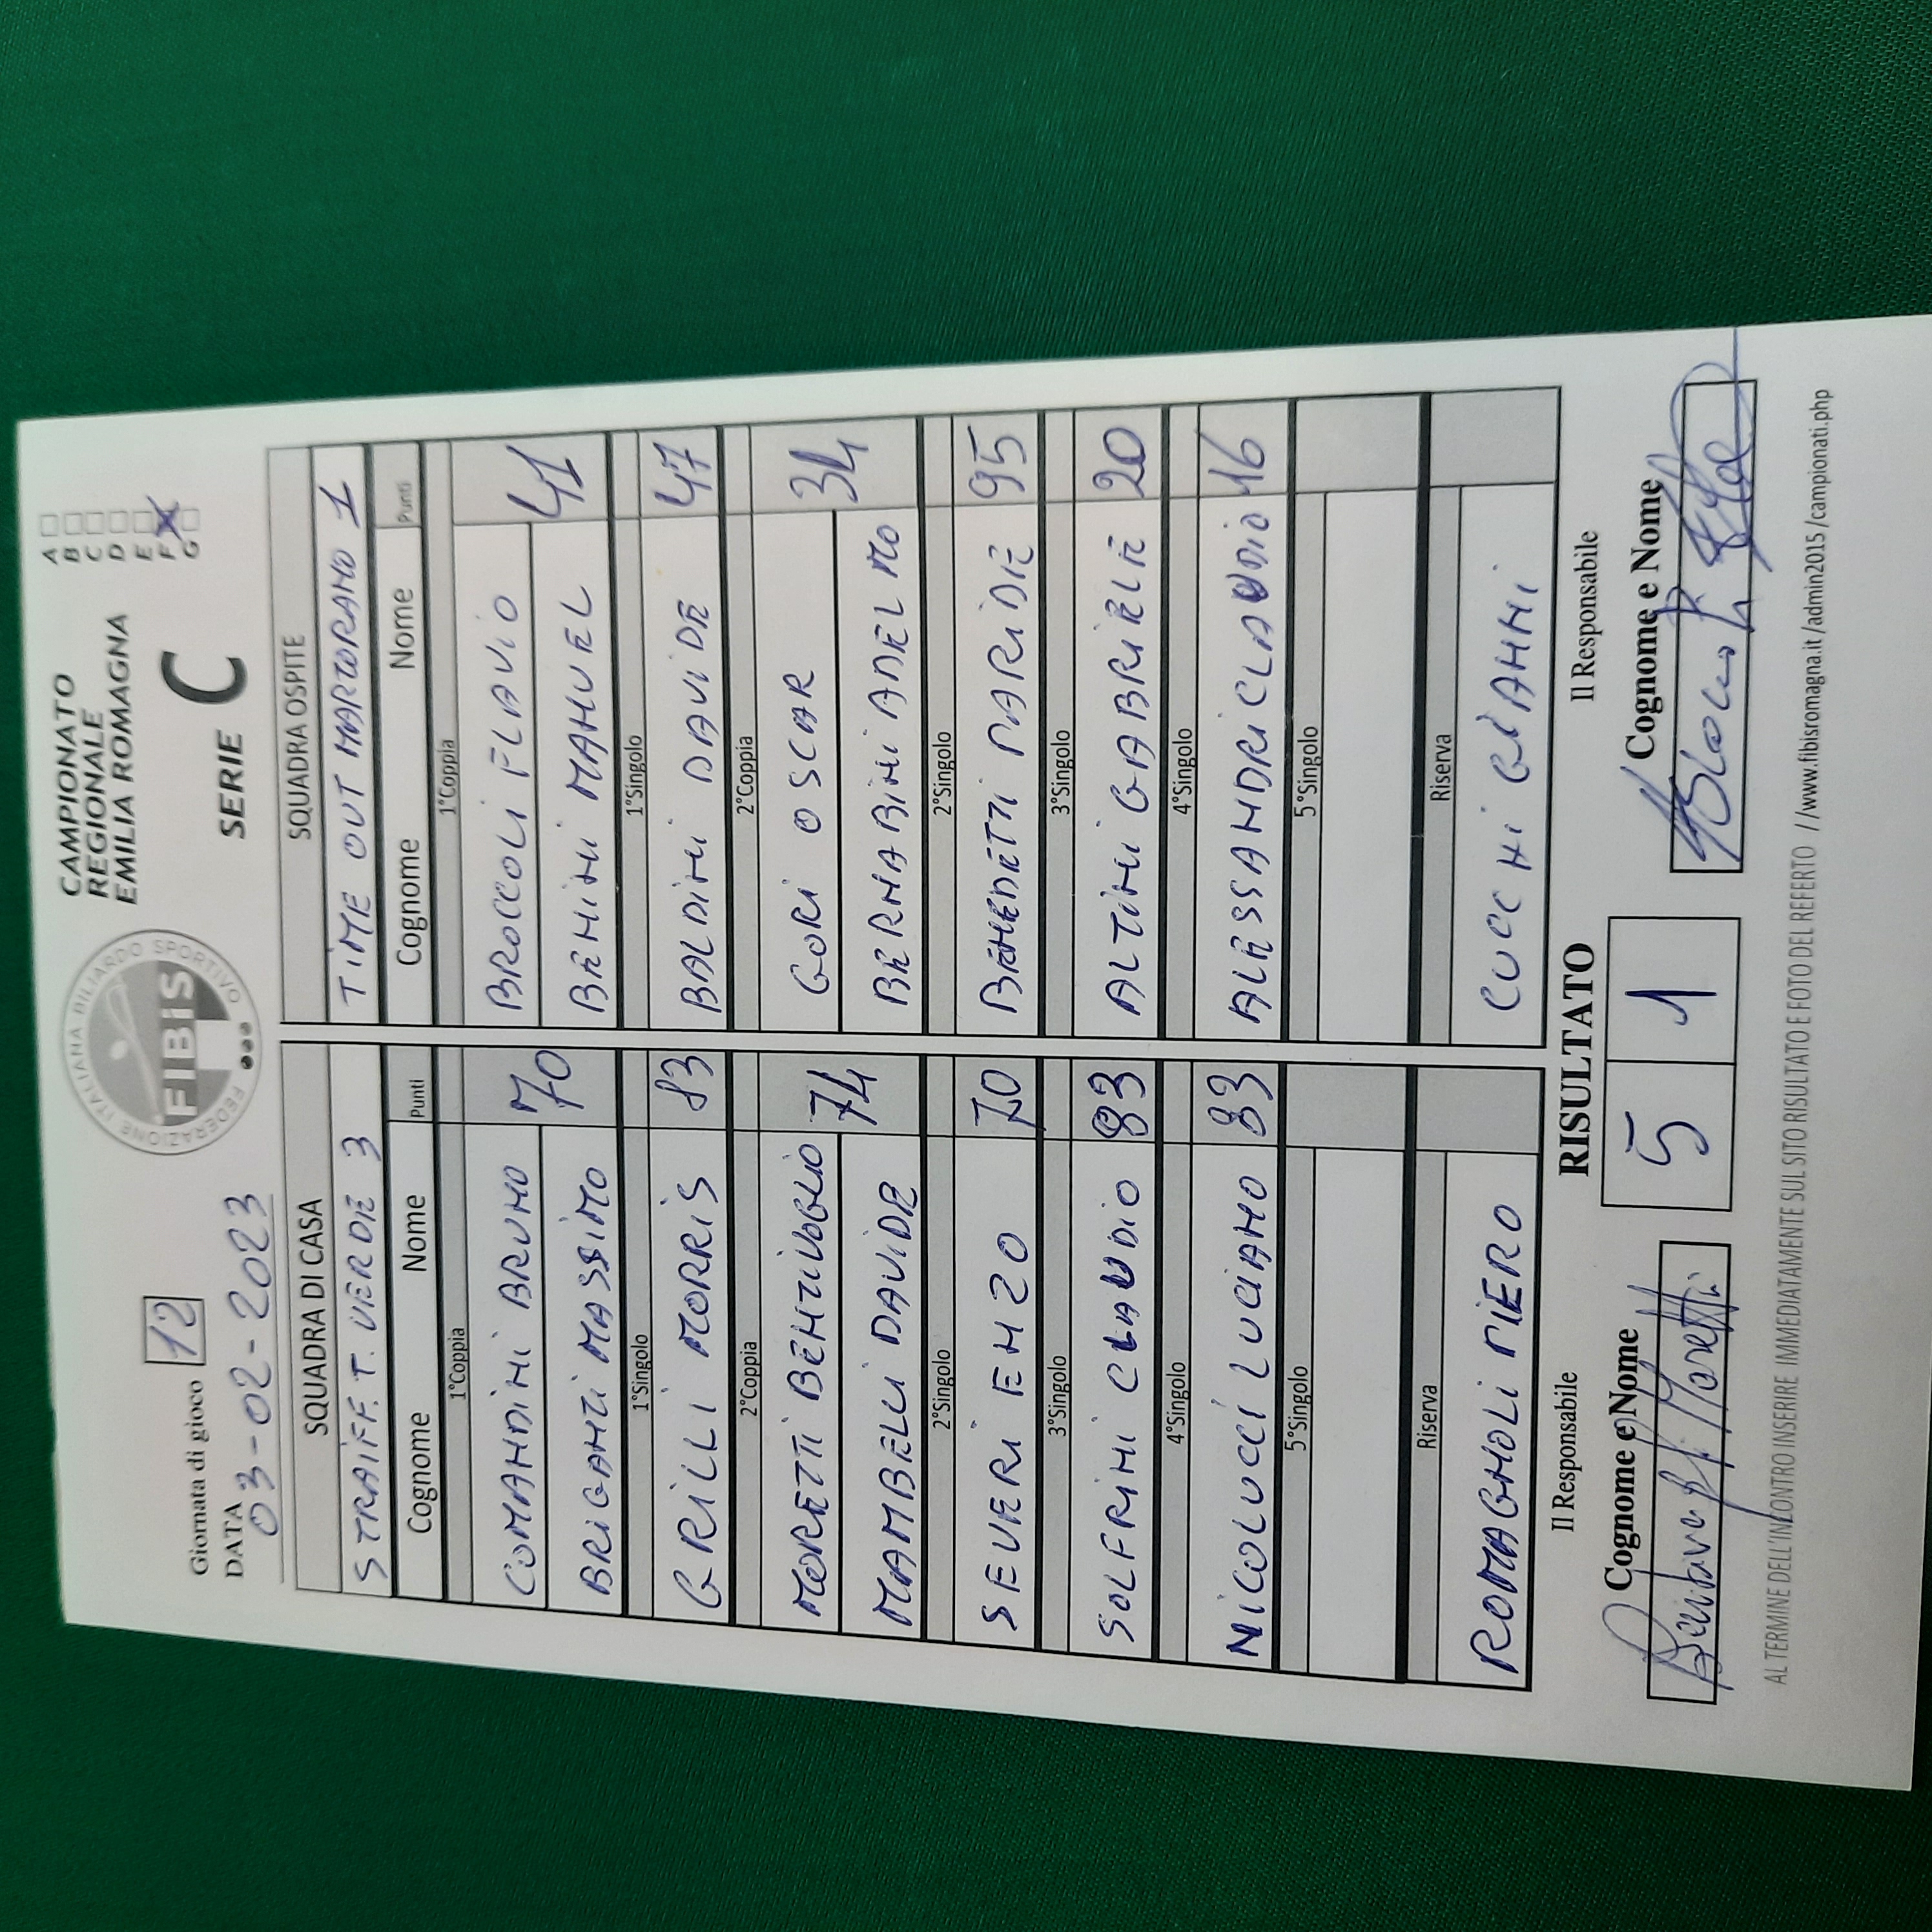 Giornata di gioco 12
DATA 03-02-2023
FEDERAZIONE ITALIANA BILIARDO SPORTIVO
FIBiS
CAMPIONATO
REGIONALE
EMILIA ROMAGNA
SERIE C
A
B
C
D
E
F X
G
SQUADRA DI CASA SQUADRA OSPITE
STRAIFF. T. VERDE 3 TIME OUT MARTORANO 1
Cognome Nome Punti Cognome Nome Punti
1°Coppia 1°Coppia
COMANDINI BRUNO 70 BROCCOLI FLAVIO 41
BRIGANTI MASSIMO BENINI MANUEL
1°Singolo 1°Singolo
GRILLI MORRIS 83 BALDINI DAVIDE 47
2°Coppia 2°Coppia
MORETTI BENTIVOGLIO 74 GORI OSCAR 34
MAMBELLI DAVIDE BERNABINI ADELMO
2°Singolo 2°Singolo
SEVERI ENZO 70 BENEDETTI PARIDE 95
3°Singolo 3°Singolo
SOLFRINI CLAUDIO 83 ALTINI GABRIELE 20
4°Singolo 4°Singolo
NICOLUCCI LUCIANO 83 ALESSANDRI CLAUDIO 16
5°Singolo 5°Singolo
Riserva Riserva
ROMAGNOLI PIERO CUCCHI GIANNI
Il Responsabile RISULTATO Il Responsabile
Cognome e Nome 5 1 Cognome e Nome
Moretti
AL TERMINE DELL'INCONTRO INSERIRE IMMEDIATAMENTE SUL SITO RISULTATO E FOTO DEL REFERTO //www.fibisromagna.it/admin2015/campionati.php